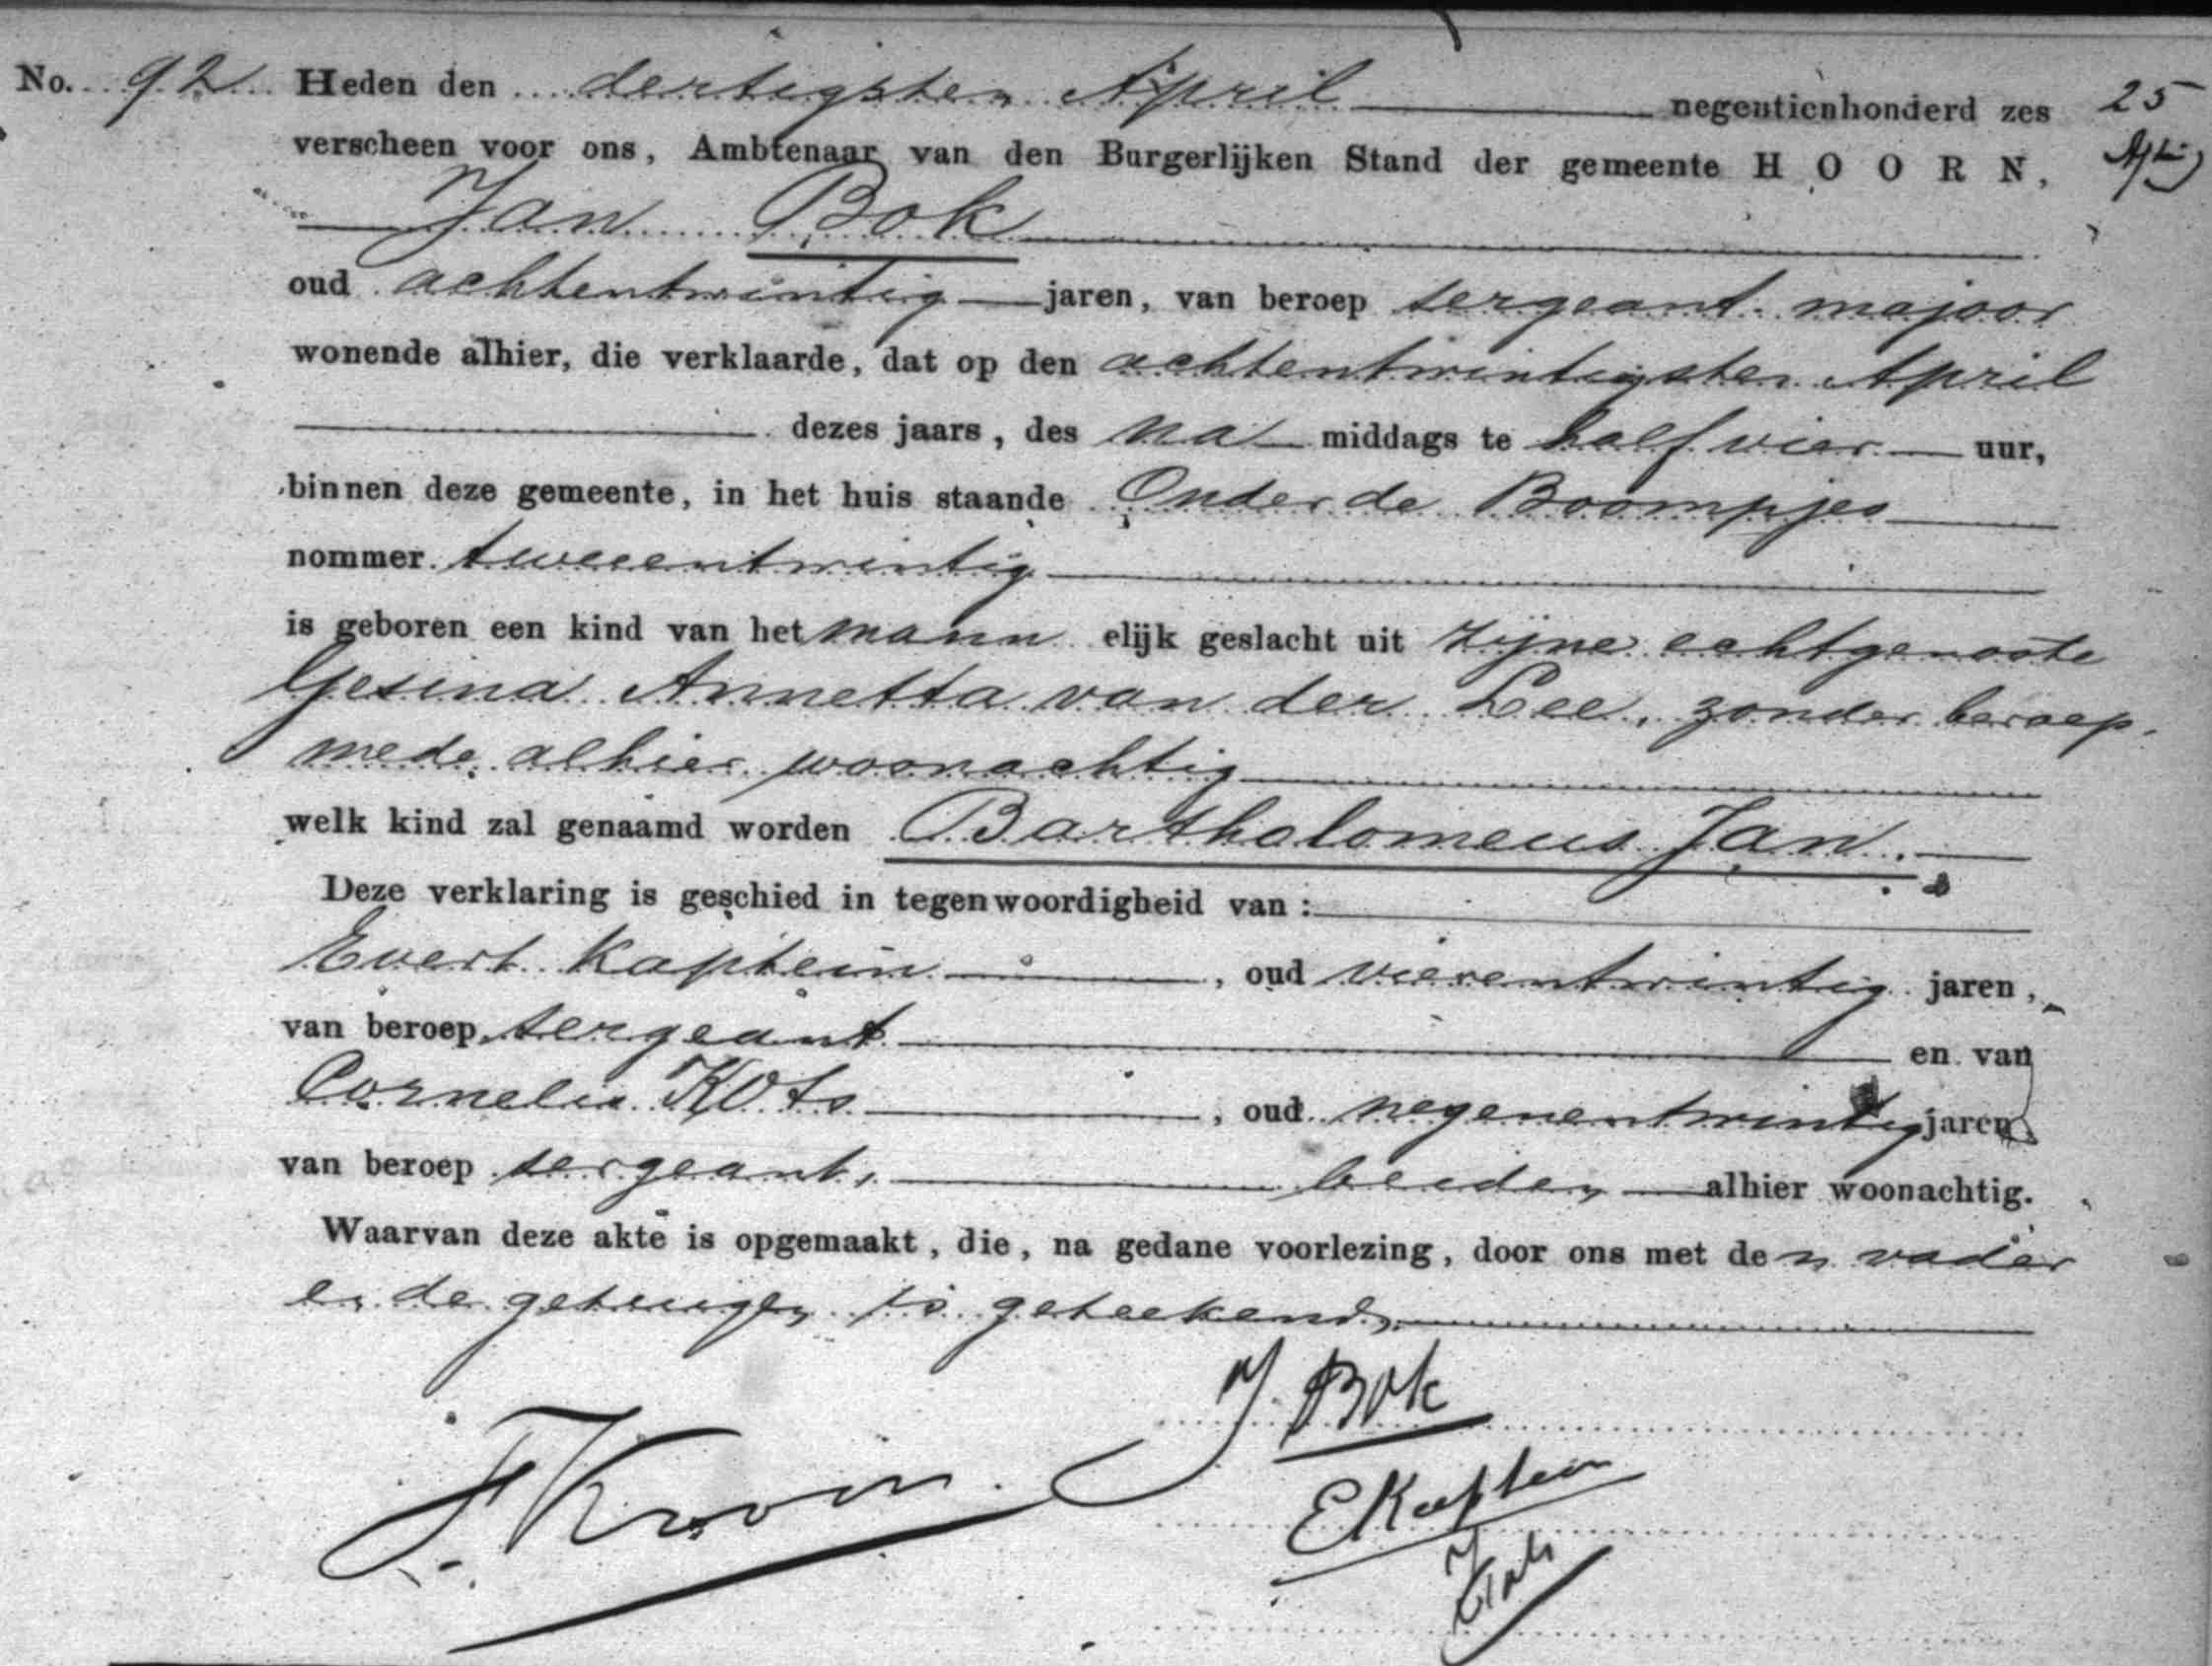 No. 92 Heden den dertigsten April negentienhonderd zes 25
verscheen voor ons, Ambtenaar van den Burgerlijken Stand der gemeente HOORN,
Jan Bok
oud achtentwintig jaren, van beroep sergeant-majoor
wonende alhier, die verklaarde, dat op den achtentwintigsten April
dezes jaars, des na middags te half vier uur,
binnen deze gemeente, in het huis staande Onder de Boompjes
nommer tweeentwintig
is geboren een kind van het mann elijk geslacht uit zijne echtgenoote
Gesina Annetta van der Lee, zonder beroep,
mede alhier woonachtig
welk kind zal genaamd worden Bartholomeus Jan.
Deze verklaring is geschied in tegenwoordigheid van:
Evert Kaptein, oud vierentwintig jaren,
van beroep sergeant en van
Cornelis Kots, oud negenentwintig jaren
van beroep sergeant, beiden alhier woonachtig.
Waarvan deze akte is opgemaakt, die, na gedane voorlezing, door ons met de n vader
en de getuigen is geteekend.
J. Bok
F. Kroon.
E Kaptein